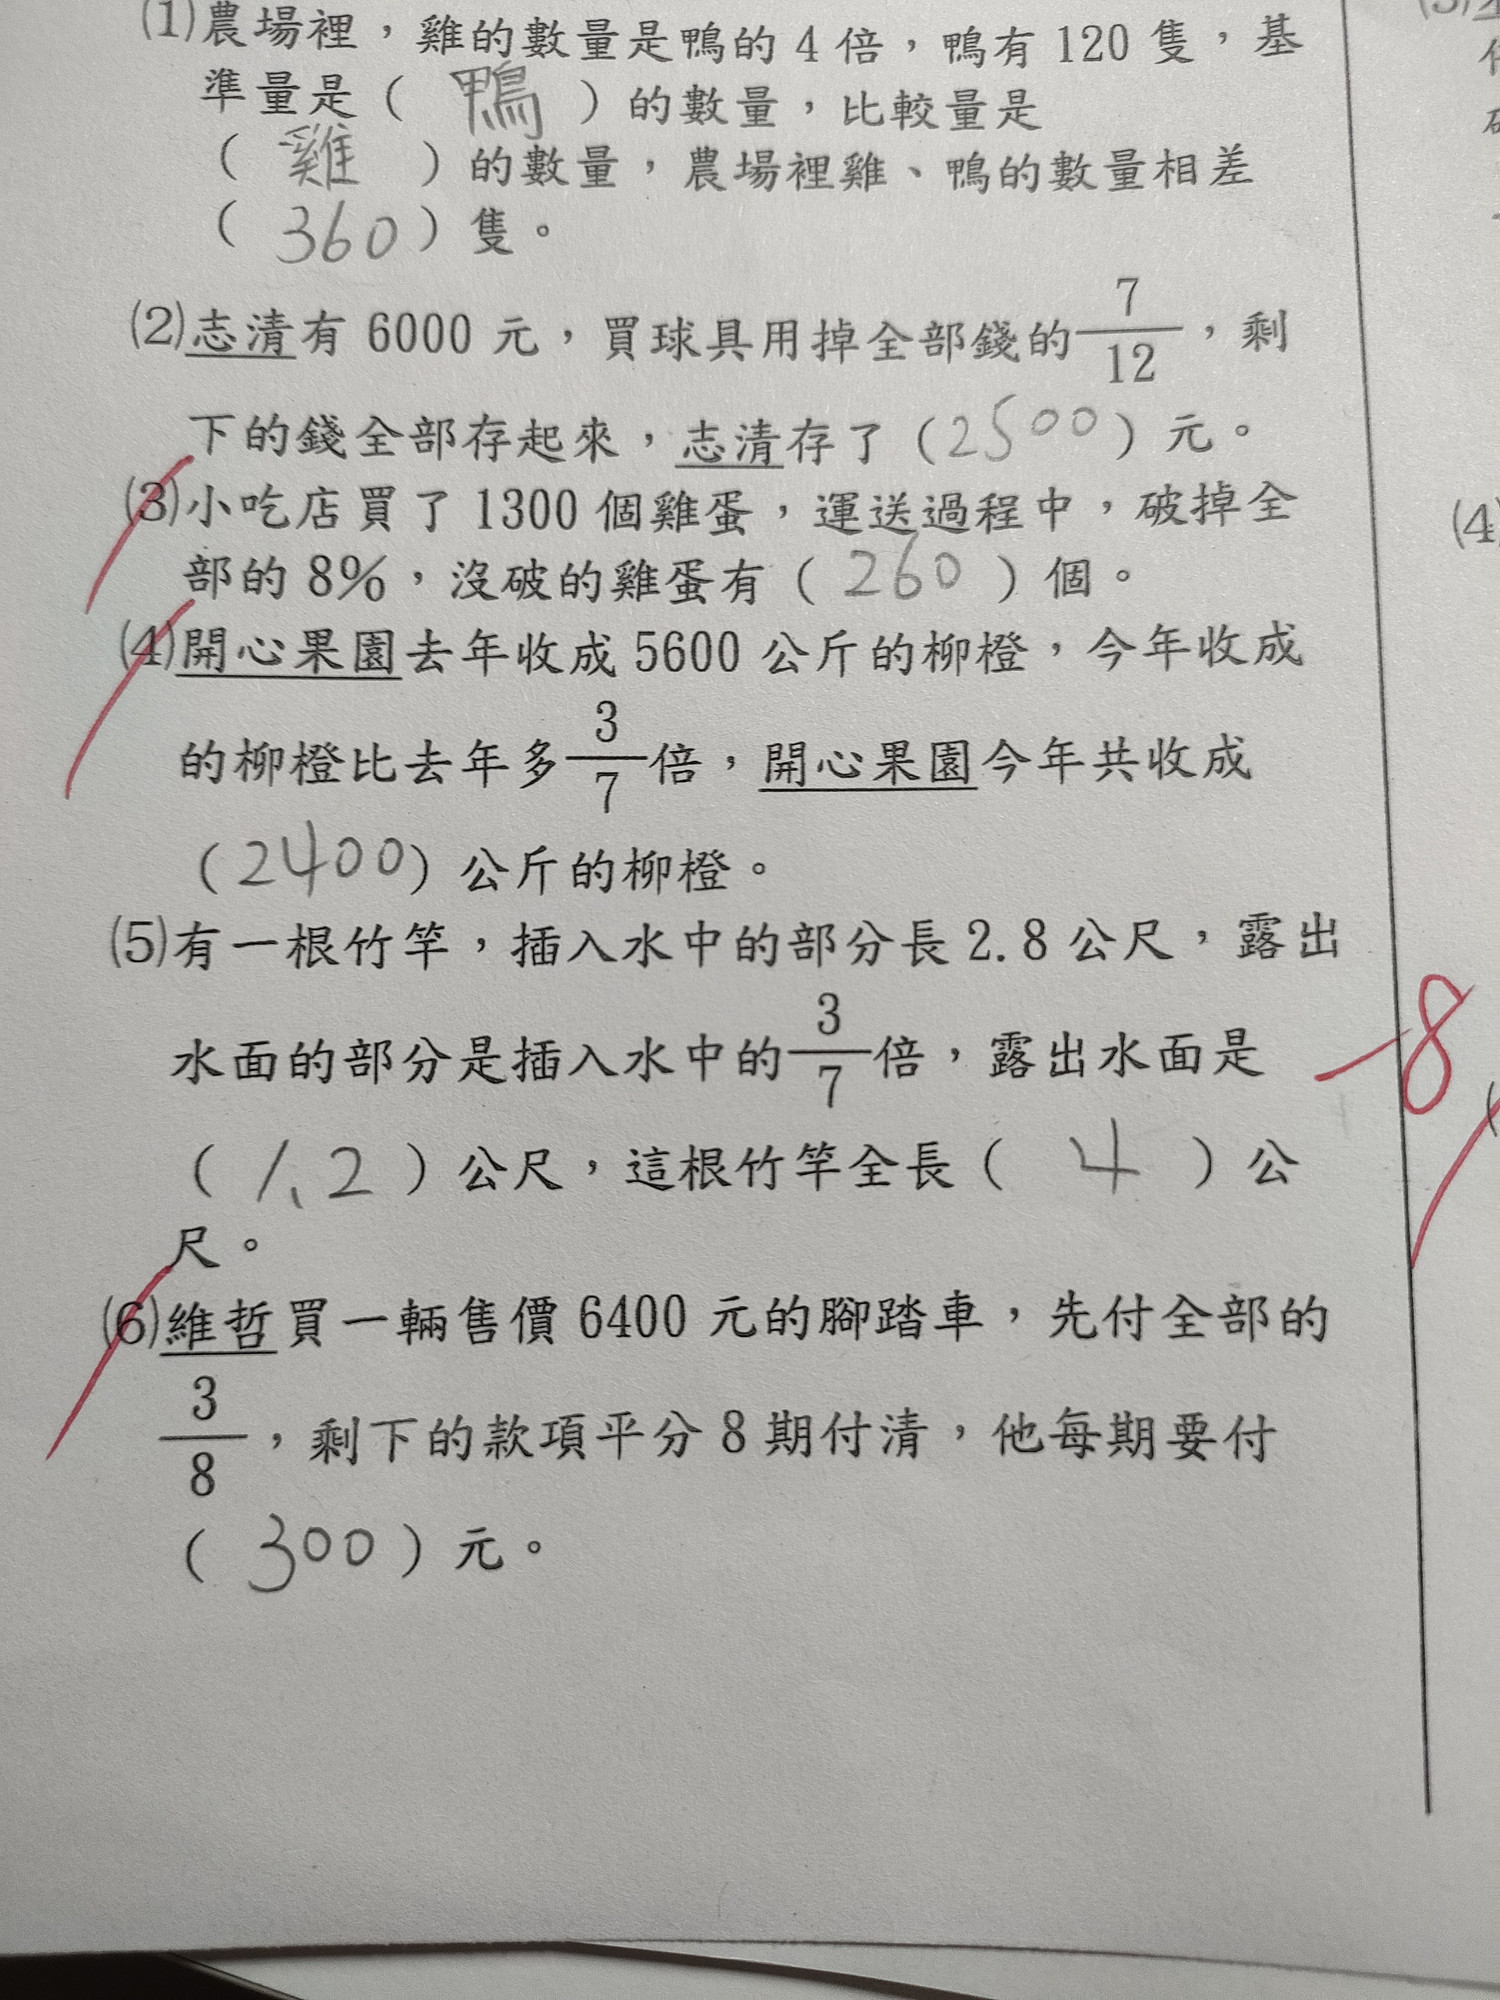 (1)農場裡，雞的數量是鴨的 4 倍，鴨有 120 隻，基
準量是（ 鴨 ）的數量，比較量是
（ 雞 ）的數量，農場裡雞、鴨的數量相差
（ 360 ）隻。
(2)志清有 6000 元，買球具用掉全部錢的 7/12 ，剩
下的錢全部存起來，志清存了（2500）元。
(3)小吃店買了 1300 個雞蛋，運送過程中，破掉全
部的 8%，沒破的雞蛋有（ 260 ）個。
(4)開心果園去年收成 5600 公斤的柳橙，今年收成
的柳橙比去年多 3/7 倍，開心果園今年共收成
（2400）公斤的柳橙。
(5)有一根竹竿，插入水中的部分長 2.8 公尺，露出
水面的部分是插入水中的 3/7 倍，露出水面是
（ 1.2 ）公尺，這根竹竿全長（ 4 ）公
尺。
(6)維哲買一輛售價 6400 元的腳踏車，先付全部的
3/8 ，剩下的款項平分 8 期付清，他每期要付
（ 300 ）元。
-8
(4)